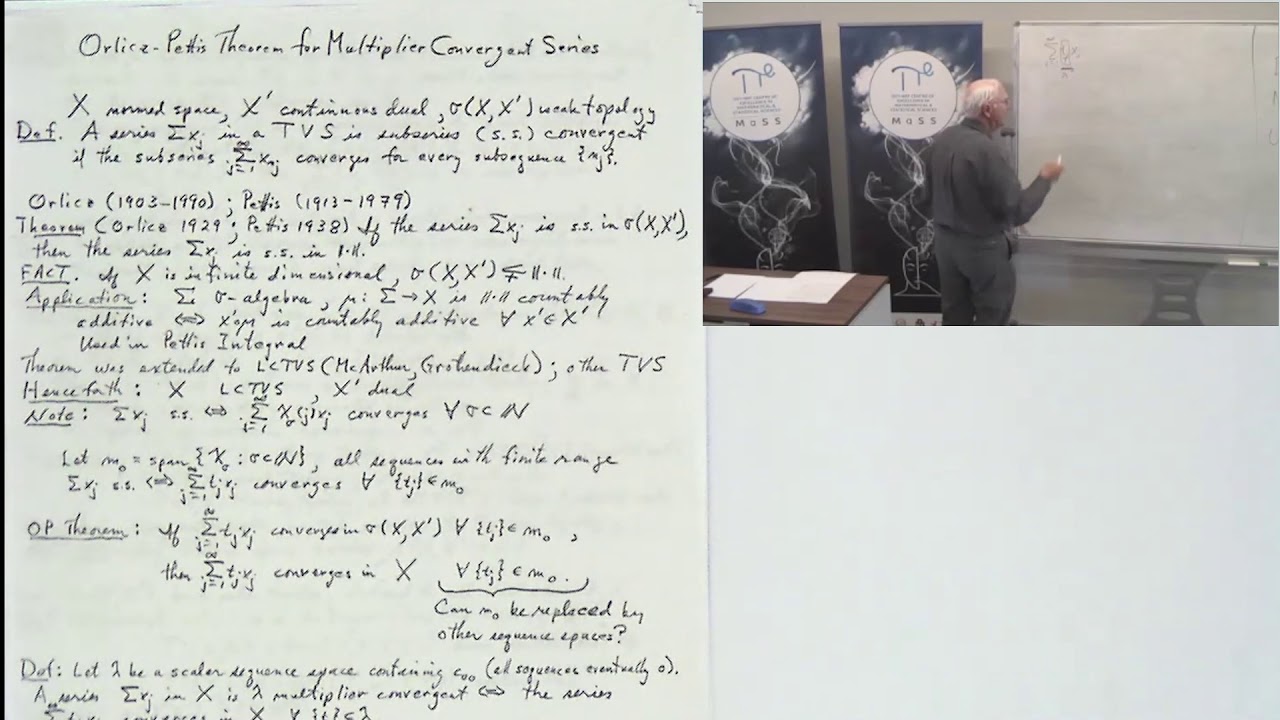 Orlicz-Pettis Theorem for Multiplier Convergent Series
X normed space, X' continuous dual, σ(X,X') weak topology
Def. A series Σxj in a TVS is subseries (s.s.) convergent
if the subseries Σ_{j=1}^∞ x_{nj} converges for every subsequence {nj}.
Orlicz (1903-1990) ; Pettis (1913-1979)
Theorem (Orlicz 1929 ; Pettis 1938) If the series Σxj is s.s. in σ(X,X'),
then the series Σxj is s.s. in ||·||.
FACT. If X is infinite dimensional, σ(X,X') ⊊ ||·||.
Application: Σ σ-algebra, μ: Σ → X is ||·|| countably
additive ⇔ x'∘μ is countably additive ∀ x' ∈ X'
Used in Pettis Integral
Theorem was extended to LCTVS (McArthur, Grothendieck) ; other TVS
Henceforth : X LCTVS, X' dual
Note : Σxj s.s. ⇔ Σ_{j=1}^∞ χ_σ(j)xj converges ∀ σ ⊂ ℕ
Let m₀ = span {χ_σ : σ ⊂ ℕ}, all sequences with finite range
Σxj s.s. ⇔ Σ_{j=1}^∞ tjxj converges ∀ {tj} ∈ m₀
OP Theorem : If Σ_{j=1}^∞ tjxj converges in σ(X,X') ∀ {tj} ∈ m₀ ,
then Σ_{j=1}^∞ tjxj converges in X ∀ {tj} ∈ m₀ .
Can m₀ be replaced by
other sequence spaces?
Def : Let λ be a scalar sequence space containing c₀₀ (all sequences eventually 0).
A series Σxj in X is λ multiplier convergent ⇔ the series
Σ tjxj converges in X ∀ {tj} ∈ λ
πe
MaSS
πe
MaSS